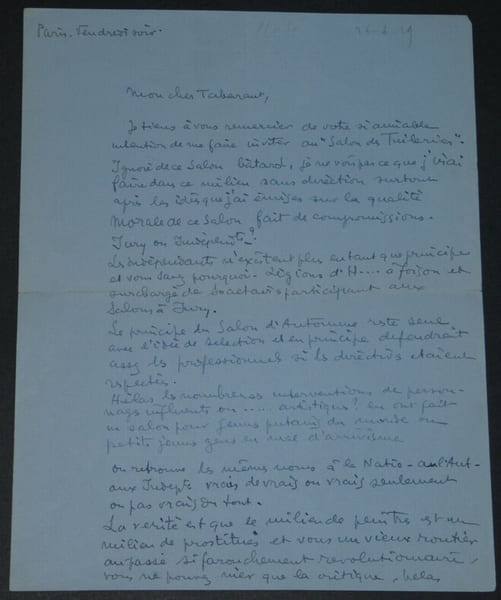 Paris. Vendredi soir.
Mon cher Tabarant,
Je tiens à vous remercier de votre si aimable
intention de me faire inviter au "Salon des Tuileries".
Ignoré de ce Salon bâtard, je ne vois pas ce que j'irai
faire dans ce milieu sans direction surtout
après les idées que j'ai émises sur la qualité
morale de ce Salon fait de compromissions.
Jury ou Indépendts ?
Les Indépendants n'existent plus en tant que principe
et vous savez pourquoi. Légions d'H.... à foison et
surchargé de Sociétaires participant aux
Salons à Jury.
Le principe du Salon d'Automne reste seul
avec l'idée de sélection et en principe défendrait
assez les professionnels si les directives étaient
respectées.
Hélas les nombreuses interventions de person-
nages influents ou ..... artistiques ? en ont fait
un salon pour jeunes putains du monde ou
petits jeunes gens en mal d'arrivisme
on retrouve les mêmes noms à la Natio - au Aut -
aux Indepts vrais de vrais ou vrais seulement
ou pas vrais du tout.
La vérité est que le milieu de peintres est un
milieu de prostitués et vous un vieux routier
au passé si farouchement révolutionnaire,
vous ne pouvez nier que la critique, hélas